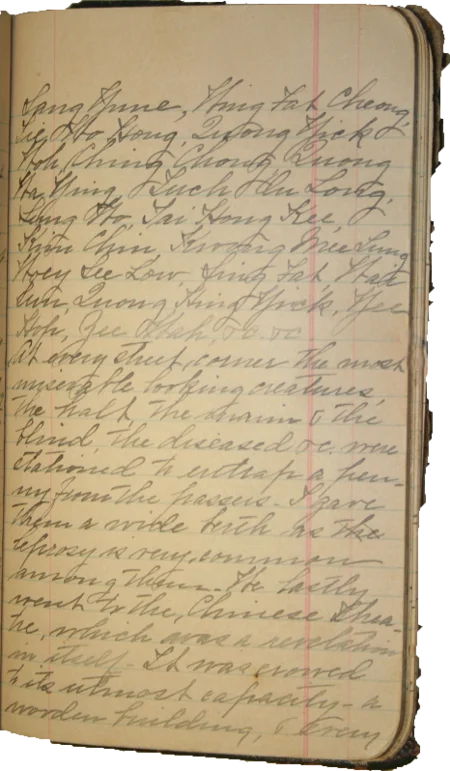 Sang Yune, Wing Fat Cheong,
Lee Wo Hong, Quong Yick
Woh, Ching Chong, Quong
Wa Ying, Kuch Hu Long,
Lung Wo, Tai Hong Kee,
Kim Chin, Kwong Mee Lung,
Hoey See Low, Sing Fat, Wah
Lun, Quong Hing Yick, Yee
Hop, Yee Wah, &c. &c
At every street corner the most
miserable looking creatures,
the halt, the maim & the
blind, the diseased &c. were
stationed to entrap a pen-
ny from the passers. I gave
them a wide berth as the
leprosy is very common
among them. We lastly
went to the Chinese Thea-
tre, which was a revelation
in itself. It was crowed
to its utmost capacity - a
wooden building, & every